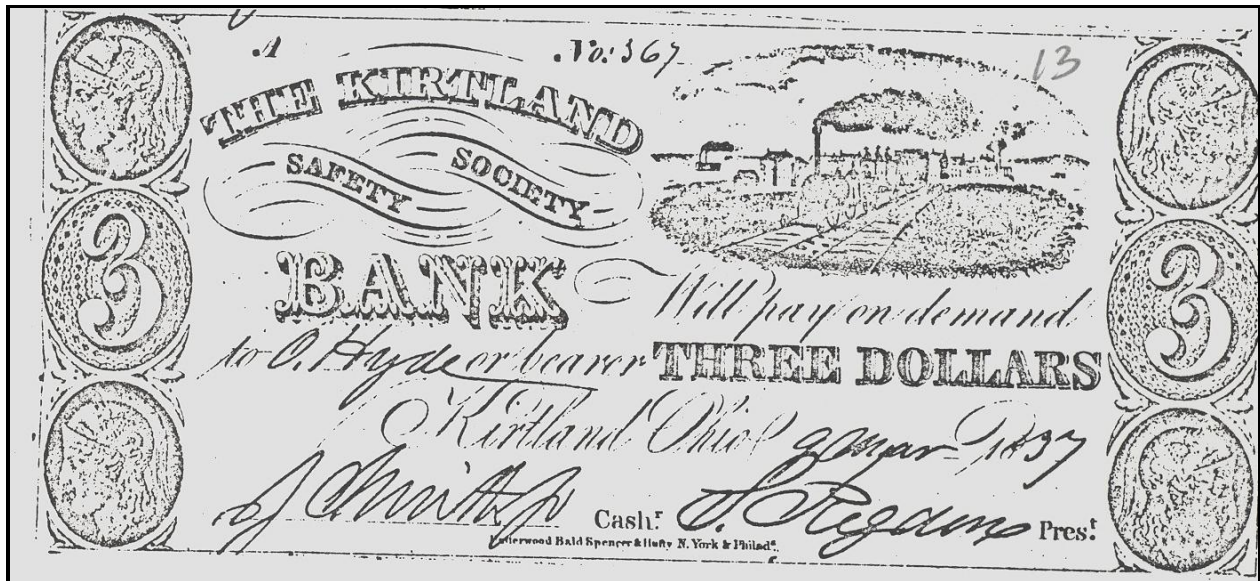 A No: 367 13
THE KIRTLAND
SAFETY SOCIETY
BANK
Will pay on demand
to O. Hyde or bearer THREE DOLLARS
Kirtland Ohio 9 Mar 1837
J Smith Jr Cash.r S. Rigdon Pres.t
Underwood Bald Spencer & Hufty N. York & Philad.a
3
3